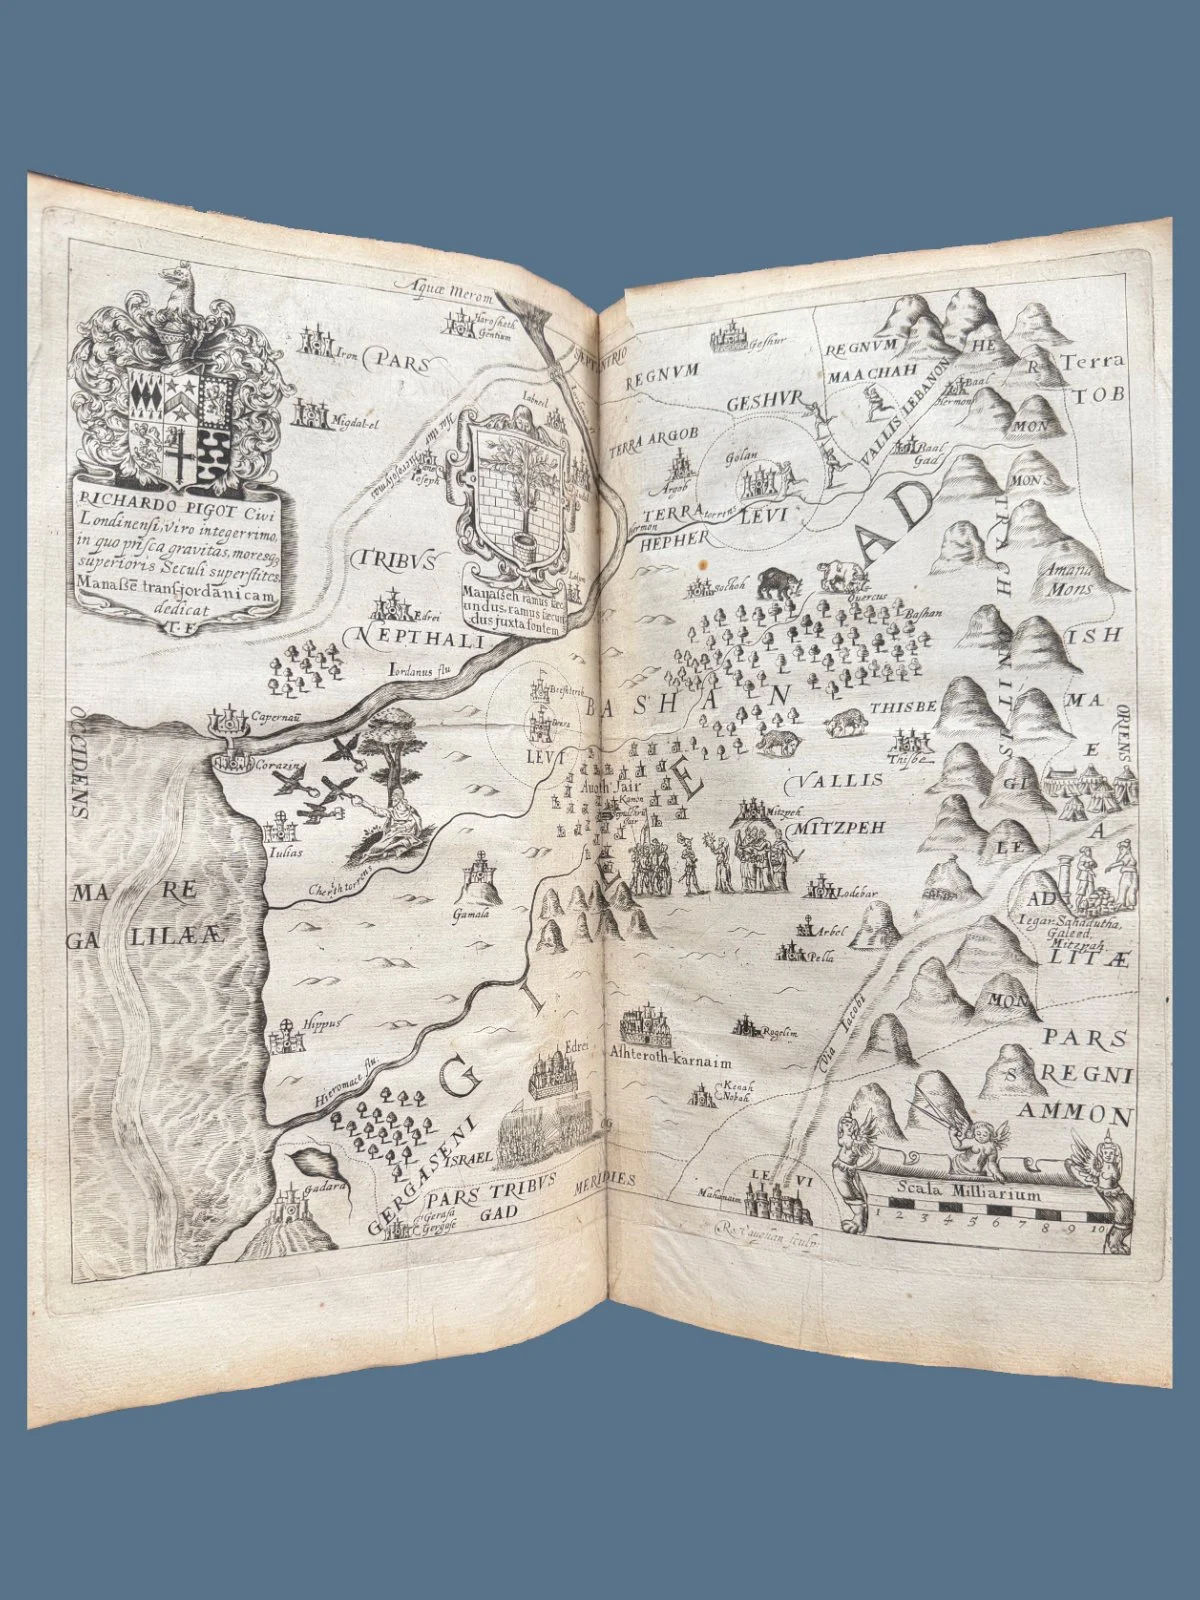 Aquæ Merom
Harosheth
Gentium
Iron
PARS
Migdal-el
RICHARDO PIGOT Civi
Londinensi, viro integerrimo,
in quo prisca gravitas, moresq3
superioris Seculi superstites,
Manassē transjordanicam
dedicat
T. F.
TRIBVS
Edrei
NEPTHALI
Iordanus flu
Manasseh ramus fæc
undus, ramus fæcun
dus juxta fontem
REGNVM
GESHVR
Geshur
REGNVM
MAACHAH
HE
R
MON
Terra
TOB
VALLIS LEBANON
Baal
Hermon
Baal
Gad
TERRA ARGOB
Argob
Golan
LEVI
TERRA
HEPHER
torrens
MONS
TRACH
ONITIS
Amana
Mons
Sochoh
Quercus
Bashan
BASHAN
THISBE
Thisbe
ISH
MA
E
GI
LE
A
AD
LITÆ
OCCIDENS
ORIENS
Capernaū
Corazin
Iulias
Cherith torrens
Gamala
MARE
GALILÆÆ
Hippus
Hieromace flu.
LEVI
Auoth Jair
VALLIS
MITZPEH
Mitzpeh
Lodebar
Arbel
Pella
Iegar-Sahadutha,
Galeed,
Mitzpah.
Via Iacobi
MON
S
GILEAD
Edrei
Ashteroth-karnaim
Rogelim
Kenah
Noboh
PARS
REGNI
AMMON
ISRAEL
OG
GERGASENI
Gadara
Gerasa
Gergose
PARS TRIBVS
GAD
MERIDIES
Mahanaim
LEVI
Scala Milliarium
1 2 3 4 5 6 7 8 9 10
Ro. Vaughan sculp: